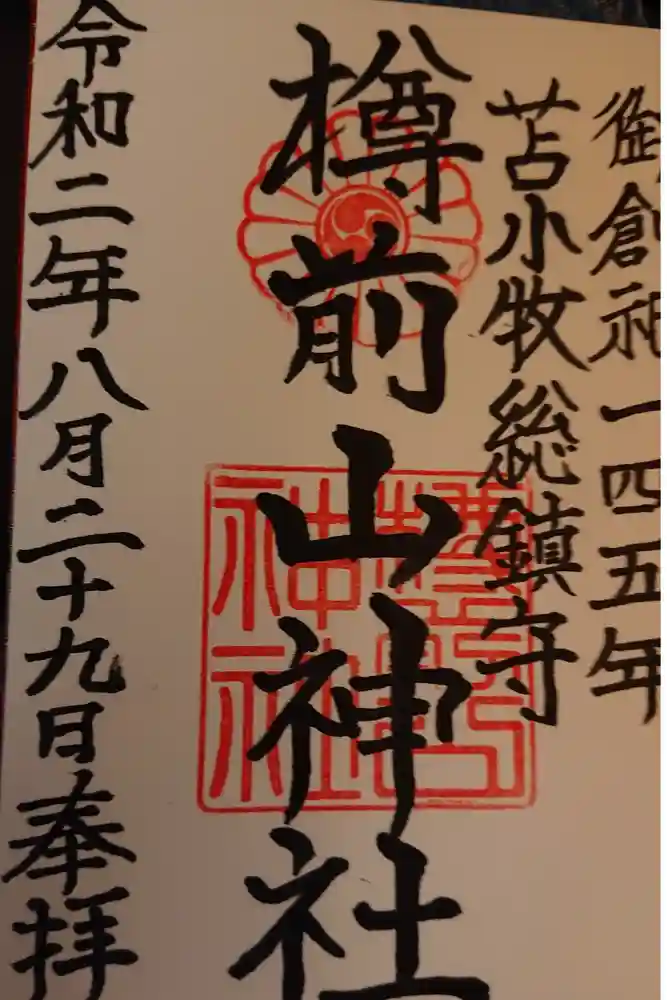 御創祀一四五年
苫小牧総鎮守
樽前山神社
令和二年八月二十九日奉拝